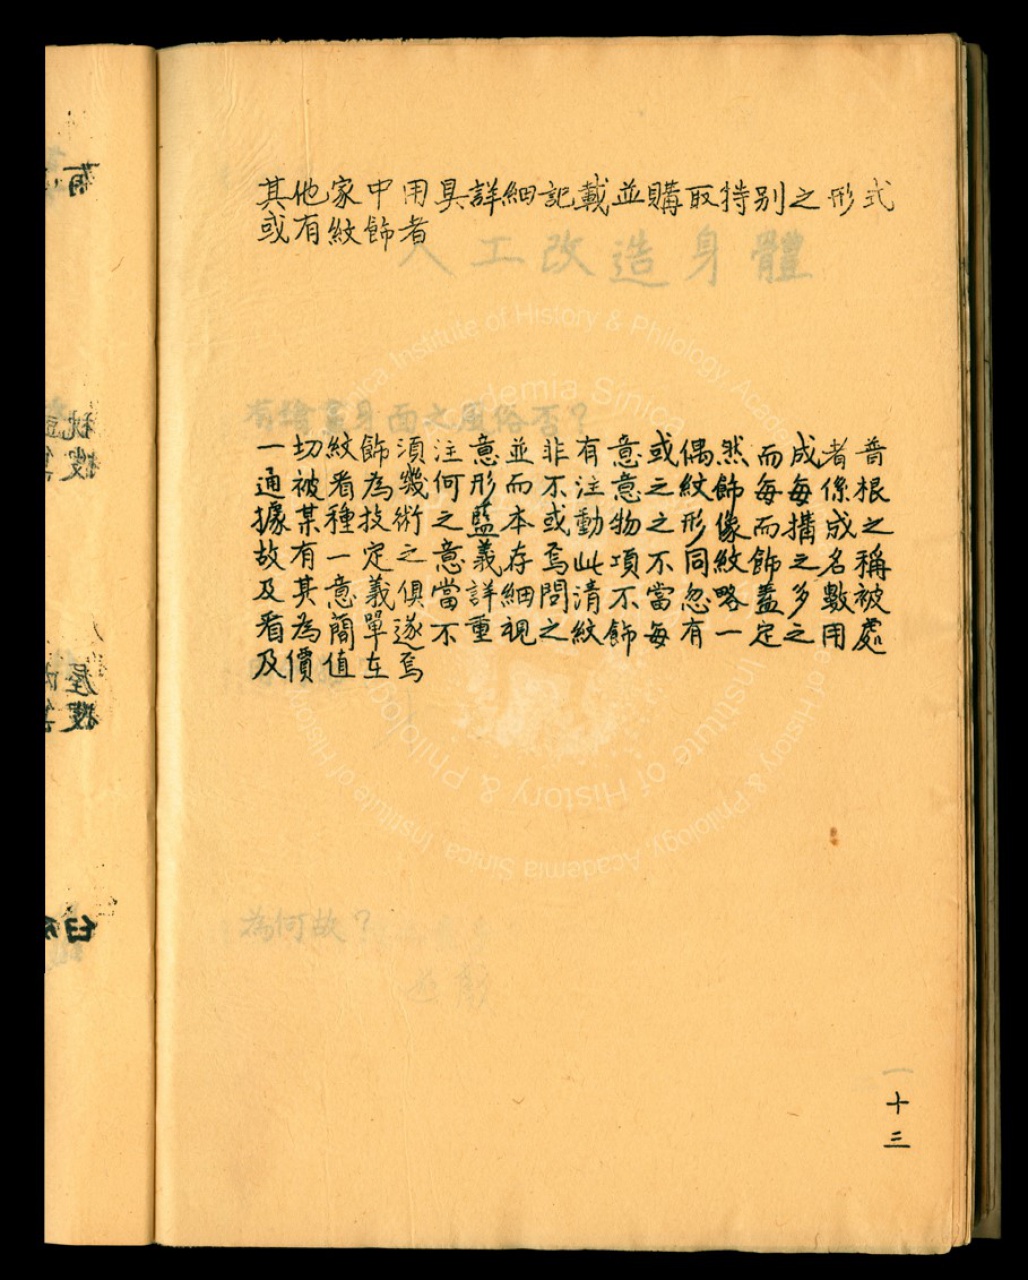 其他家中用具詳細記載並購取特别之形式
或有紋飾者
人工改造身體
有繪畫身面之風俗否？
一切紋飾須注意並非有意或偶然而成者普
通被看為幾何形而不注意之紋飾每每係根
據某種技術之藍本或動物之形像而搆成之
故有一定之意義存焉此項不同紋飾之名稱
及其意義俱當詳細問清不當忽略蓋多數被
看為簡單遂不重視之紋飾每有一定之用處
及價值在焉
為何故？
十三
Institute of History & Philology, Academia Sinica